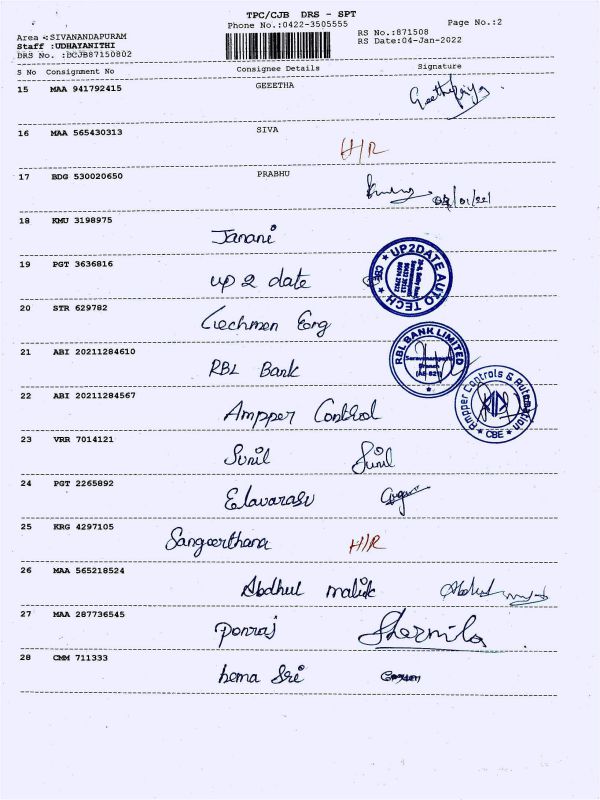 TPC/CJB DRS - SPT
Phone No.:0422-3505555
Page No.:2
Area :SIVANANDAPURAM
Staff :UDHAYANITHI
DRS No. :DCJB87150802
RS No.:871508
RS Date:04-Jan-2022
S No Consignment No Consignee Details Signature
15 MAA 941792415 GEEETHA Geethapriya
16 MAA 565430313 SIVA H/R
17 BDG 530020650 PRABHU 04/01/22
18 KMU 3198975 Janani
19 PGT 3636816 up 2 date
UP2DATE AUTO TECH
CBE
20 STR 629782 Engg
21 ABI 20211284610 RBL Bank
RBL BANK LIMITED
Saravanampatti
Branch
22 ABI 20211284567 Ampper Control
Ampper Controls & Automation
CBE
23 VRR 7014121 Sunil Sunil
24 PGT 2265892 Elavarasu
25 KRG 4297105 Sangeerthana H/R
26 MAA 565218524 Abdhul malik
27 MAA 287736545 ponraj Sharmila
28 CMM 711333 hema Sri